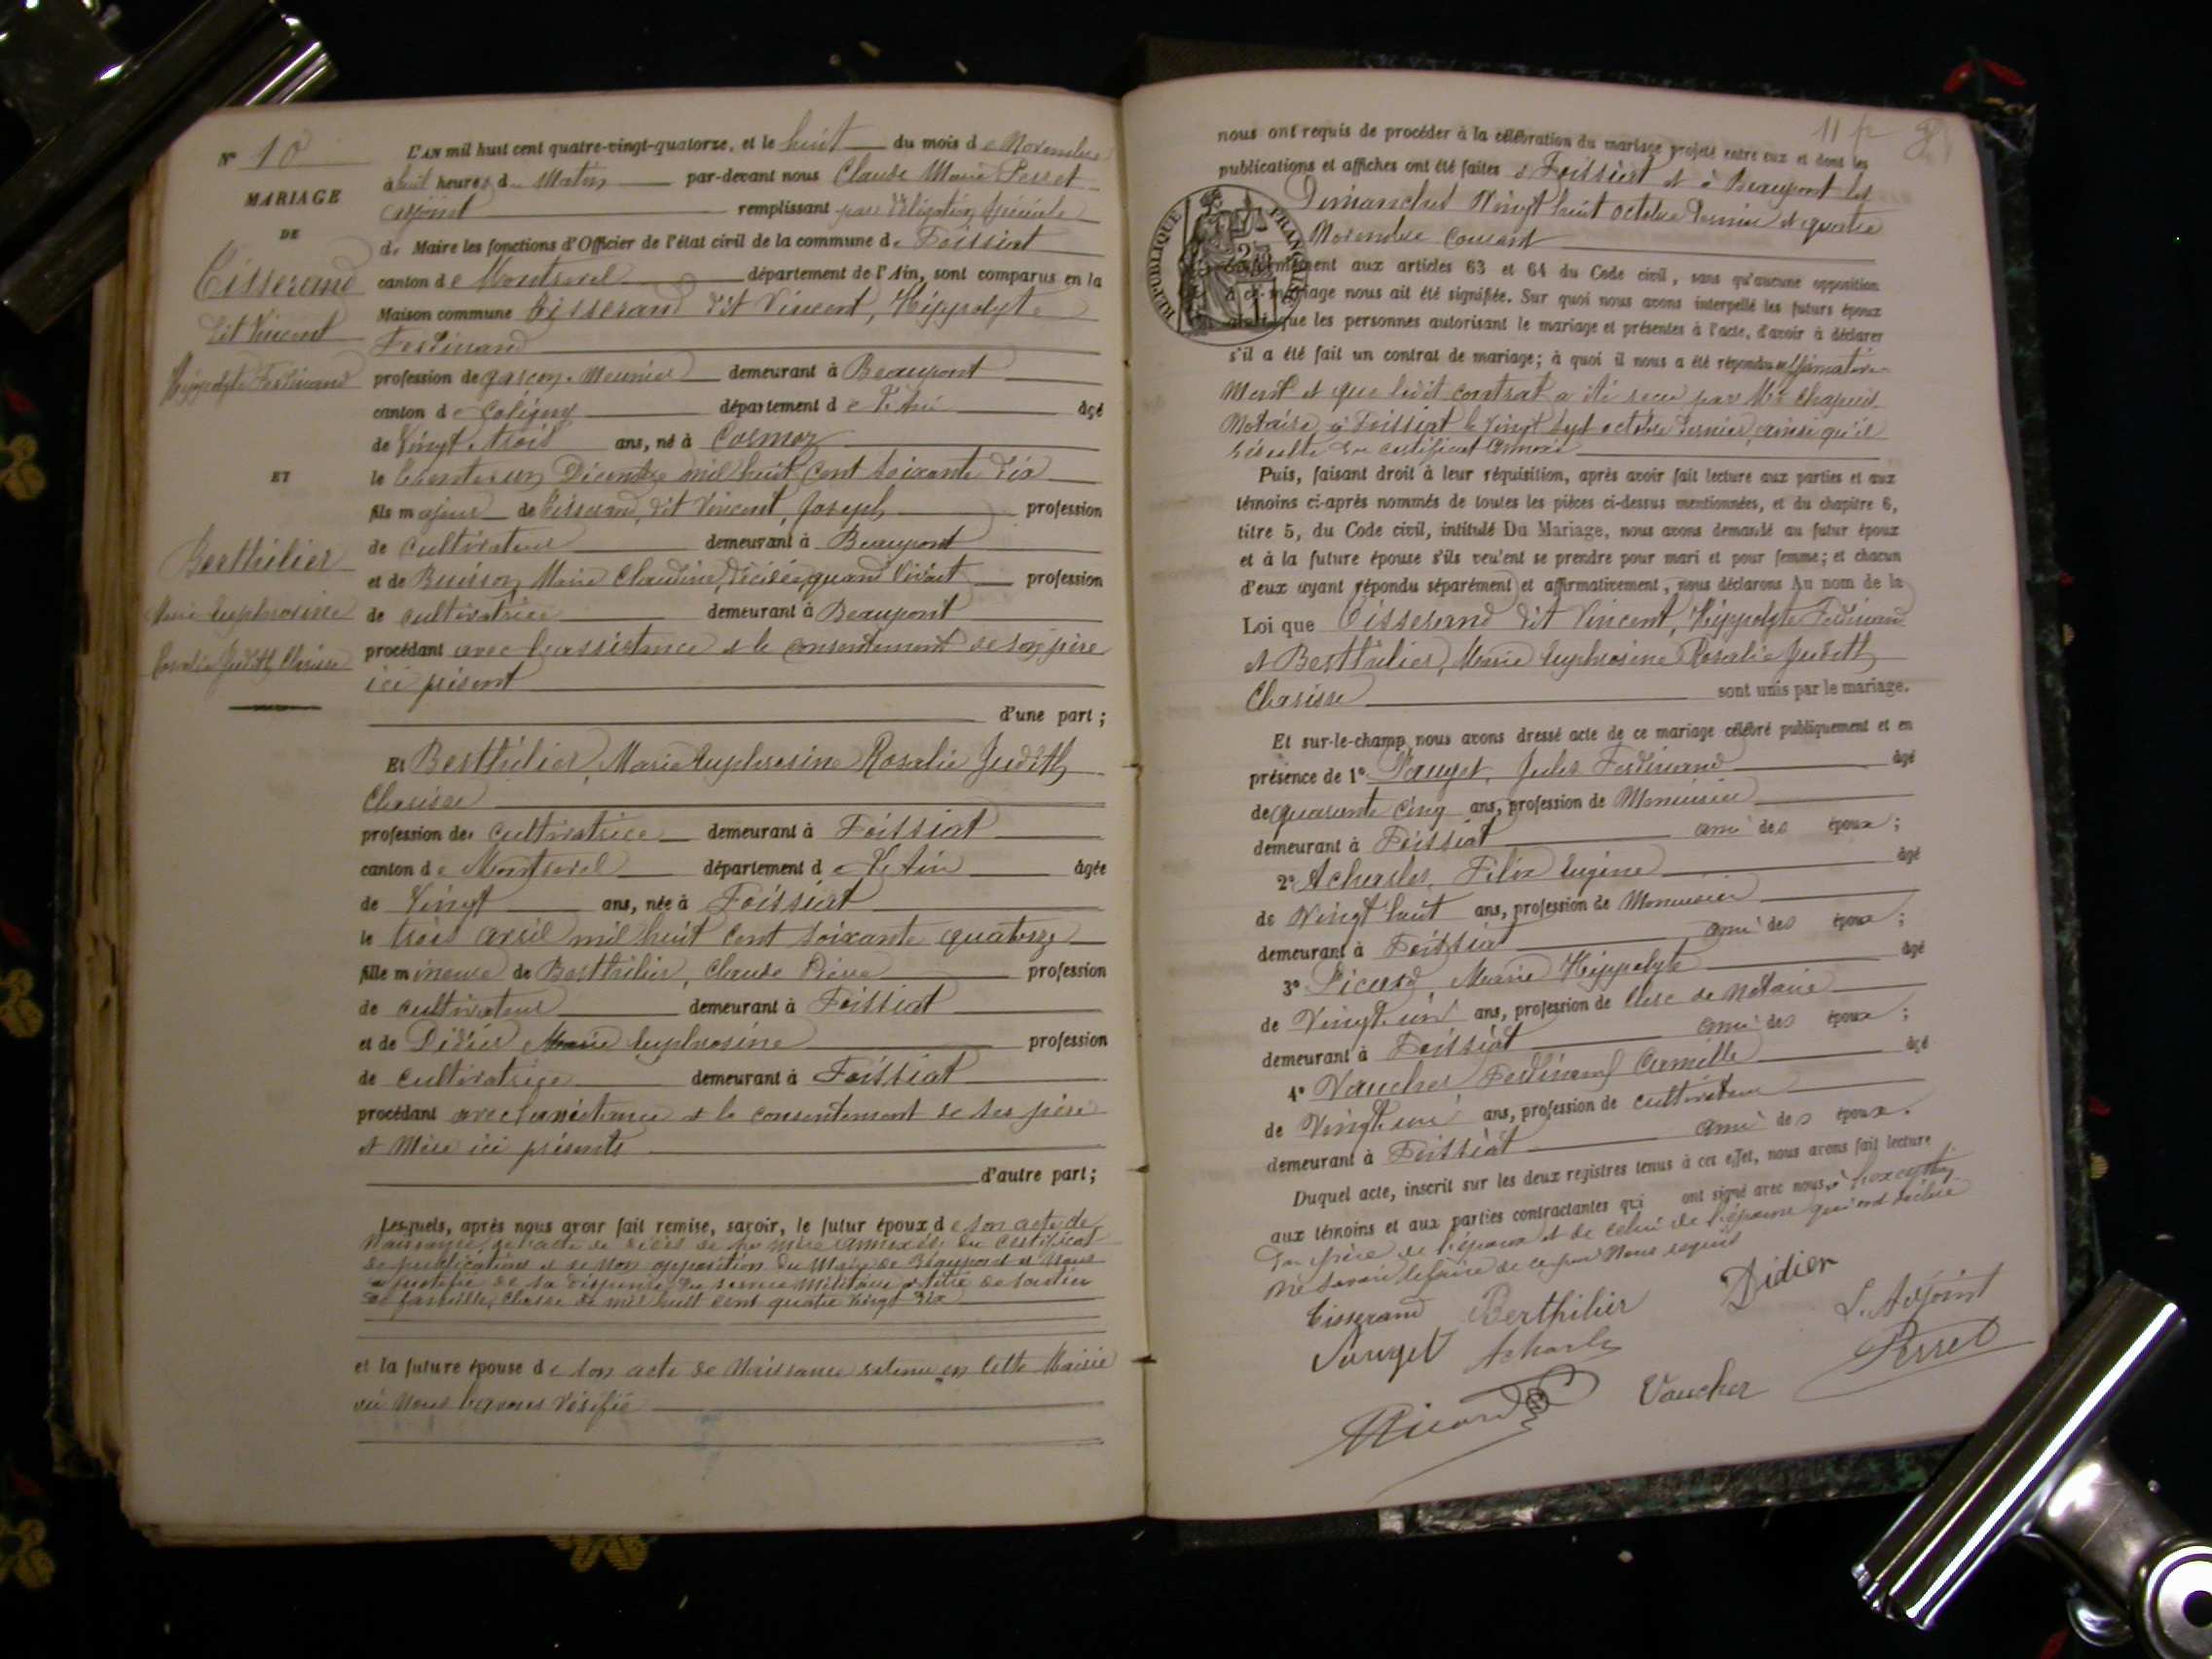 N° 10
MARIAGE
DE
Tisserand
dit Vincent
Hippolyte Ferdinand
ET
Berthilier
Marie Euphrosine
Rosalie Judith Clarisse
L'AN mil huit cent quatre-vingt-quatorze, et le huit du mois de Novembre
à huit heures d Matin par-devant nous Claude Marie Perret
adjoint remplissant par délégation spéciale
de Maire les fonctions d'Officier de l'état civil de la commune de Foissiat
canton de Montrevel département de l'Ain, sont comparus en la
Maison commune Tisserand dit Vincent, Hippolyte
Ferdinand
profession de garçon-Meunier demeurant à Beaupont
canton de Coligny département de l'Ain âgé
de Vingt-trois ans, né à Cormoz
le trente un Décembre mil huit cent soixante dix
fils majeur de Tisserand, dit Vincent, Joseph profession
de cultivateur demeurant à Beaupont
et de Buisson, Marie Claudine, décédée, quand vivait profession
de cultivatrice demeurant à Beaupont
procédant avec l'assistance et le consentement de son père
ici présent
d'une part ;
Et Berthilier, Marie Euphrosine Rosalie Judith
Clarisse
profession de cultivatrice demeurant à Foissiat
canton de Montrevel département de l'Ain âgée
de Vingt ans, née à Foissiat
le trois avril mil huit cent soixante quatorze
fille mineure de Berthilier, Claude Pierre profession
de cultivateur demeurant à Foissiat
et de Didier Marie Euphrosine profession
de cultivatrice demeurant à Foissiat
procédant avec l'assistance et le consentement de ses père
et Mère ici présents
d'autre part ;
Lesquels, après nous avoir fait remise, savoir, le futur époux de son acte de
Naissance, de l'acte de décès de sa mère annexés, du certificat
de publications et de non opposition du Maire de Beaupont et nous
a justifié de sa dispense du service militaire à titre de soutien
de famille, classe de mil huit cent quatre vingt dix
et la future épouse de son acte de Naissance retenu en cette Mairie
où Nous l'avons vérifié
11 f
nous ont requis de procéder à la célébration du mariage projeté entre eux et dont les
publications et affiches ont été faites à Foissiat et à Beaupont les
Dimanches Vingt huit octobre dernier et quatre
Novembre courant
RÉPUBLIQUE FRANÇAISE
conformément aux articles 63 et 64 du Code civil, sans qu'aucune opposition
à ce mariage nous ait été signifiée. Sur quoi nous avons interpellé les futurs époux
ainsi que les personnes autorisant le mariage et présentes à l'acte, d'avoir à déclarer
s'il a été fait un contrat de mariage ; à quoi il nous a été répondu affirmative-
ment et que ledit contrat a été reçu par Me Chapuis
Notaire à Foissiat le vingt sept octobre dernier, ainsi qu'il
résulte du certificat annexé
Puis, faisant droit à leur réquisition, après avoir fait lecture aux parties et aux
témoins ci-après nommés de toutes les pièces ci-dessus mentionnées, et du chapitre 6,
titre 5, du Code civil, intitulé Du Mariage, nous avons demandé au futur époux
et à la future épouse s'ils veulent se prendre pour mari et pour femme ; et chacun
d'eux ayant répondu séparément et affirmativement, nous déclarons Au nom de la
Loi que Tisserand dit Vincent, Hippolyte Ferdinand
et Berthilier, Marie Euphrosine Rosalie Judith
Clarisse sont unis par le mariage.
Et sur-le-champ nous avons dressé acte de ce mariage célébré publiquement et en
présence de 1° Pauget, Jules Ferdinand âgé
de quarante cinq ans, profession de Menuisier
demeurant à Foissiat ami des époux ;
2° Acharles, Félix Eugène âgé
de Vingt huit ans, profession de Menuisier
demeurant à Foissiat ami des époux ;
3° Picard, Marie Hippolyte âgé
de Vingt un ans, profession de clerc de Notaire
demeurant à Foissiat ami des époux ;
4° Vaucher Ferdinand Camille âgé
de Vingt un ans, profession de cultivateur
demeurant à Foissiat ami des époux.
Duquel acte, inscrit sur les deux registres tenus à cet effet, nous avons fait lecture
aux témoins et aux parties contractantes qui ont signé avec nous, à l'exception
du père de l'époux et de celui de l'épouse qui ont déclaré
ne savoir le faire de ce par Nous requis
Tisserand Berthilier Didier
L'Adjoint
Pauget Acharles Perret
Picard Vaucher